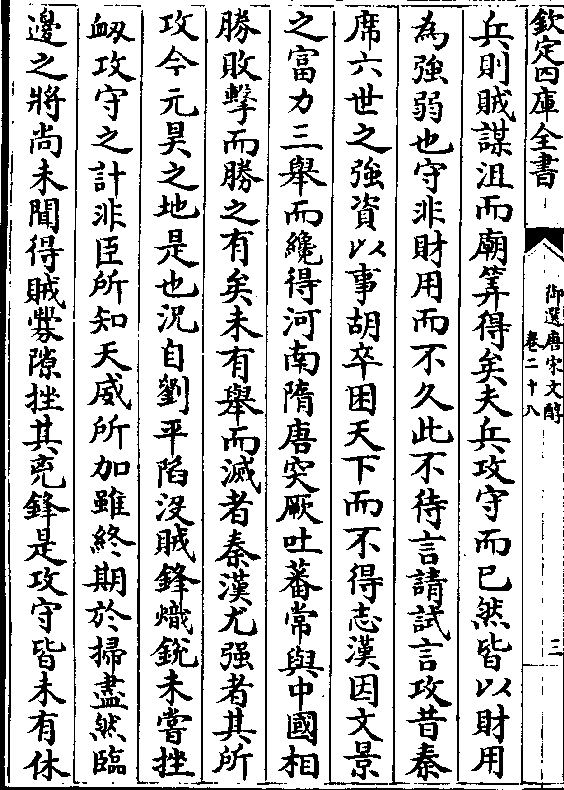 欽定四庫全書
御選唐宋文醇
卷二十八
三
兵則賊謀沮而廟筭得矣夫兵攻守而已然皆以財用
為強弱也守非財用而不久此不待言請試言攻昔秦
席六世之強資以事胡卒困天下而不得志漢因文景
之富力三舉而纔得河南隋唐突厥吐蕃常與中國相
勝敗擊而勝之有矣未有舉而滅者秦漢尤强者其所
攻今元昊之地是也況自劉平陷没賊鋒熾銳未嘗挫
衂攻守之計非臣所知天威所加雖終期於掃盡然臨
邊之將尚未聞得賊釁隙挫其兇鋒是攻守皆未有休